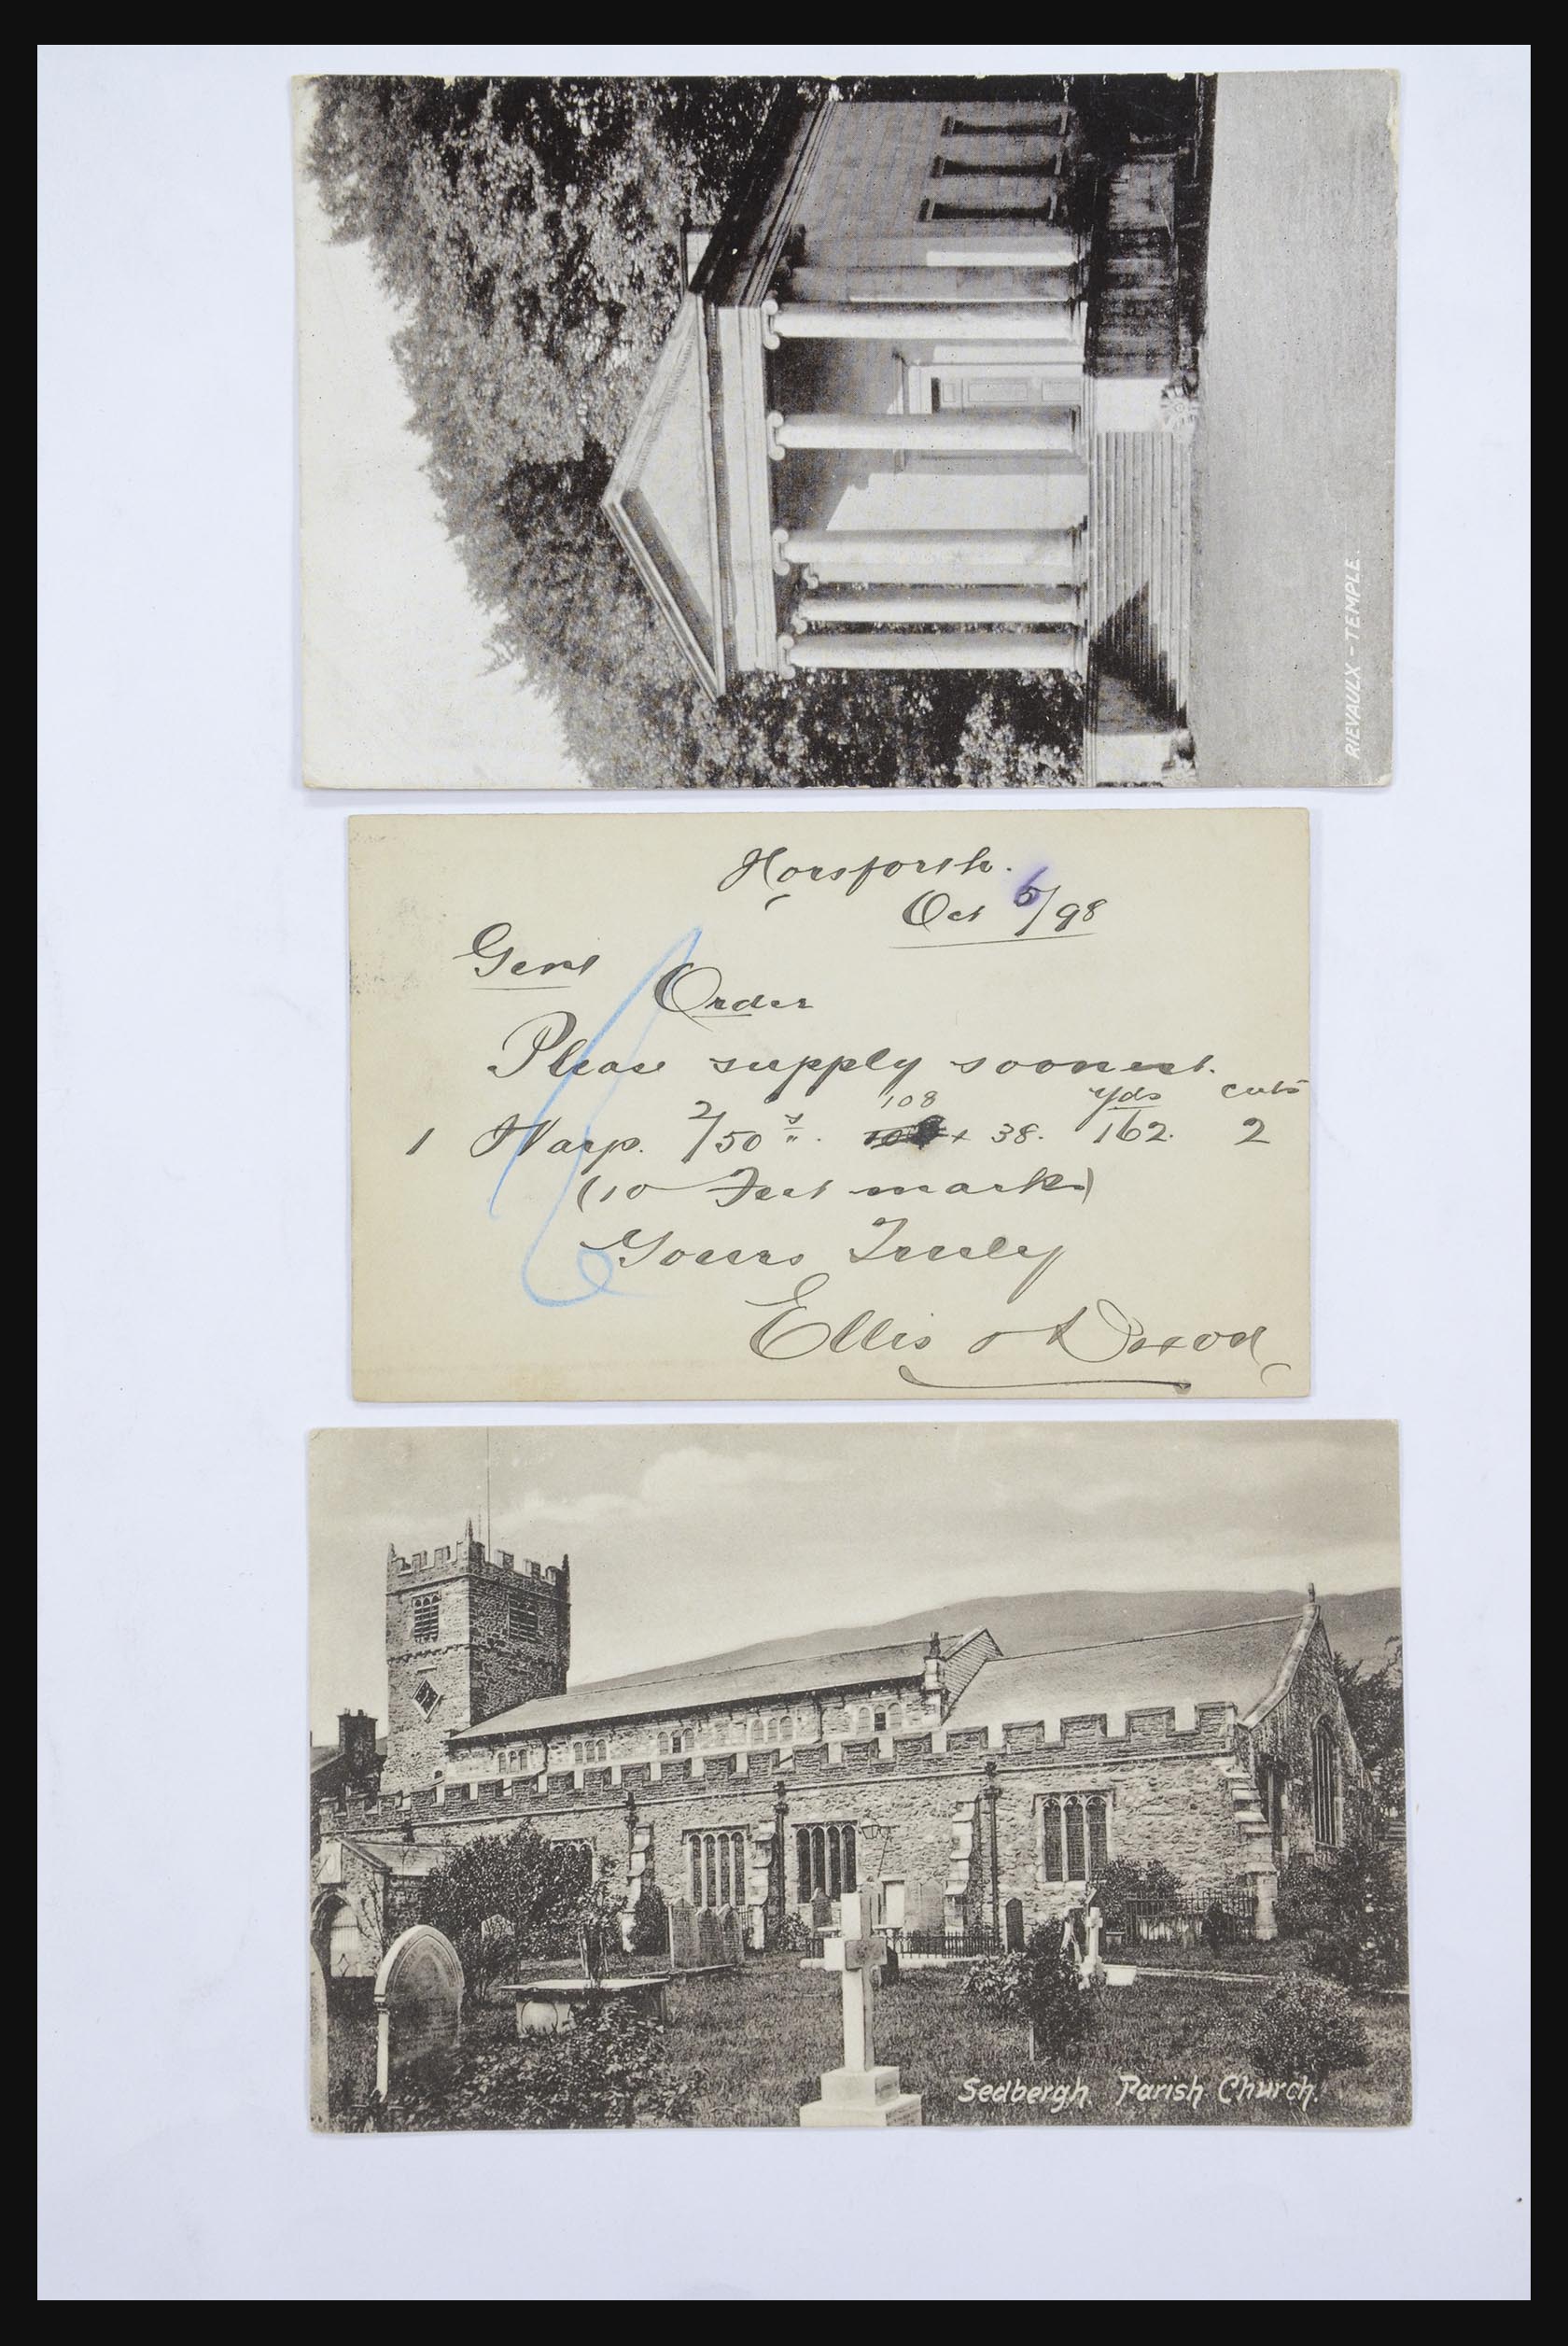 RIEVAULX – TEMPLE.
Horsforth.
Oct 6/98
Gent
Order
Please supply soonest.
108 yds cuts
1 Warp. 2/50s. + 38. 162. 2
(10 Feet marks)
Yours Truly
Ellis &
Sedbergh. Parish Church.